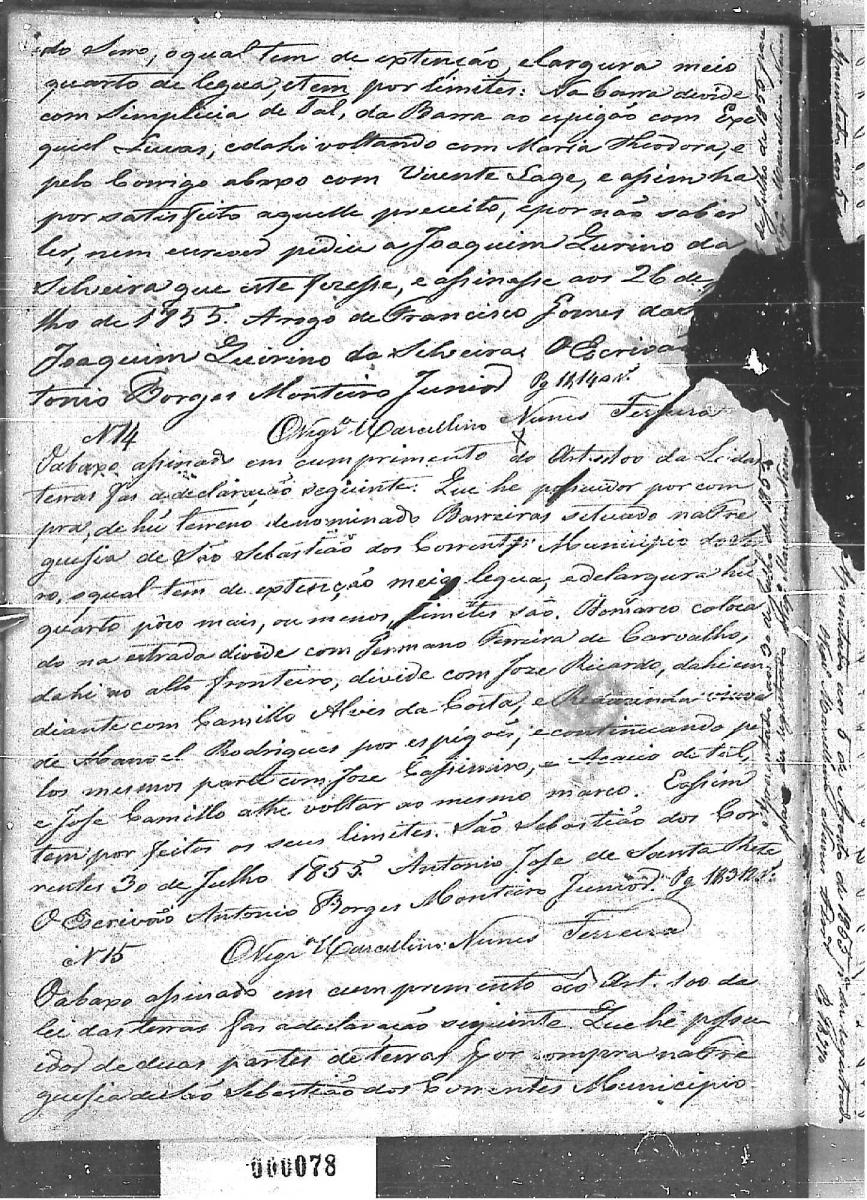 do Serro, o qual tem de extenção, e largura meio
quarto de legua, e tem por limites: Na barra devide
com Simplicia de Tal, da Barra ao espigão com Eze
quiel Lucas, e dahi voltando com Maria Theodora, e
pelo Corrigo abaxo com Vicente Lage, e assim ha
por satisfeito aquelle preceito, e por não saber
ler, nem escrever pediu a Joaquim Quirino da
Silveira que este fizesse, e assinasse aos 26 de
lho de 1855. Arogo de Francisco Gomes da
Joaquim Quirino da Silveira. O Escrivão
tonio Borges Monteiro Junior Pg
N 14 O Vigrº Marcellino Nunes Ferreira
O abaxo assinado em cumprimento do Artº 100 da Lei das
terras fas a declaração seguinte: Que he possuidor por com
pra, de hú terreno denominado Barreiras situado na Fre
guesia de São Sebastião dos Correntes Municipio do Ser
ro, o qual tem de extenção meia legua, e de largura hú
quarto pôco mais, ou menos, limites são. Hum marco coloca
do na estrada divide com Germano Ferreira de Carvalho,
dahi ao alto fronteiro, divide com Joze Ricardo, dahi em
diante com Camillo Alves da Costa, e viuva
de Manoel Rodrigues por espigões, e continuando pe
los mesmos parte com Joze Cassimiro, e Acacio de tal,
e Jose Camillo athe voltar ao mesmo marco. E assim
tem por feitos os seus limites. São Sebastião dos Cor
rentes 30 de Julho 1855. Antonio Jose de Santa
O Escrivão Antonio Borges Monteiro Junior. Pg
N 15 O Vigrº Marcellino Nunes Ferreira
O abaxo assinado em cumprimento ao Art. 100 da
lei das terras fas a declaração seguinte. Que hé possu
idor de duas partes de terras por compra na Fre
guesia de São Sebastião dos Correntes Municipio
Apresentado aos 30 de Julho de 1855
Julho de 1855 para
Apresentado aos 6 de Agosto de 1855
000078